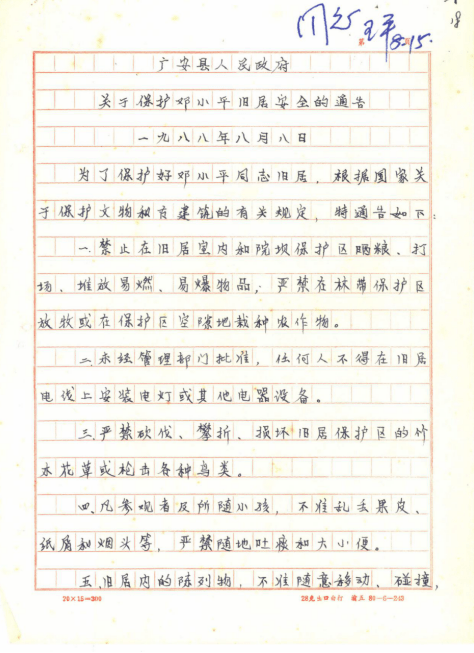 8-15.
18
广安县人民政府
关于保护邓小平旧居安全的通告
一九八八年八月八日
为了保护好邓小平同志旧居，根据国家关
于保护文物和古建筑的有关规定，特通告如下：
一.禁止在旧居室内和院坝保护区晒粮、打
场、堆放易燃、易爆物品，严禁在林带保护区
放牧或在保护区空隙地栽种农作物。
二.未经管理部门批准，任何人不得在旧居
电线上安装电灯或其他电器设备。
三.严禁砍伐、攀折、损坏旧居保护区的竹
木花草或枪击各种鸟类。
四.凡参观者及所随小孩，不准乱丢果皮、
纸屑和烟头等，严禁随地吐痰和大小便。
五.旧居内的陈列物，不准随意移动、碰撞，
20×15=300